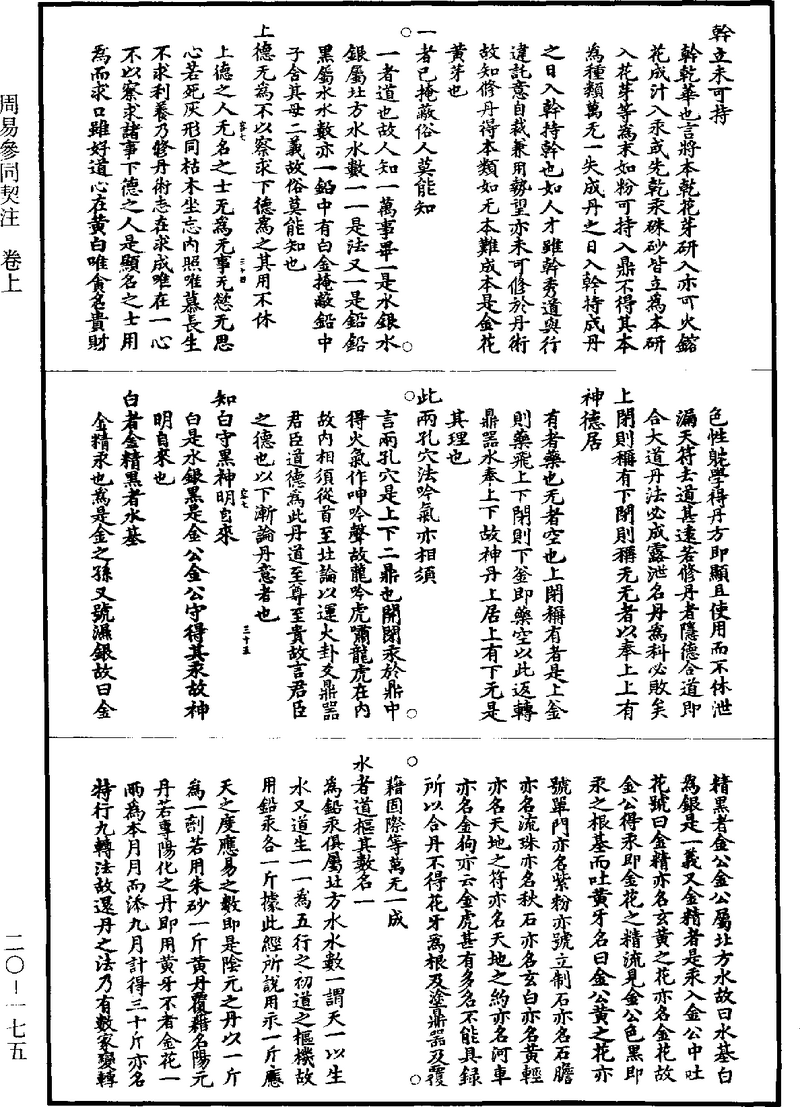 幹立未可持
幹乾華也言將本乾花芽研入亦可火鎔
花成汁入汞或先乾汞硃砂皆立為本研
入花芽等為末如粉可持入鼎不得其本
為種類萬无一失成丹之日入幹持成丹
之日入幹持幹也如人才雖幹秀道與行
違託意自裁兼用勢望亦未可修於丹術
故知修丹得本類如无本難成本是金花
黃芽也
一者已掩蔽俗人莫能知
一者道也故人知一萬事畢一是水銀水
銀屬北方水水數一一是法又一是鉛鉛
黑屬水水數亦一鉛中有白金掩蔽鉛中
子含其母二義故俗莫能知也
上德无為不以察求下德為之其用不休
上德之人无名之士无為无事无慾无思
心若死灰形同枯木坐忘內照唯慕長生
不求利養乃修丹術志在求成唯在一心
不以察求諸事下德之人是顯名之士用
為而求口雖好道心在黃白唯貪名貴財
色性躭學得丹方即顯且使用而不休泄
漏天符去道甚遠若修丹者隱德合道即
合大道丹法必成露泄名丹為科必敗矣
上閉則稱有下閉則稱无无者以奉上上有
神德居
有者藥也无者空也上閉稱有者是上釜
則藥飛上下閉則下釜即藥空以此返轉
鼎器水奉上下故神丹上居上有下无是
其理也
此兩孔穴法吟氣亦相須
言兩孔穴是上下二鼎也開閉汞於鼎中
得火氣作呻吟聲故龍吟虎嘯龍虎在內
故內相須從首至此論以運火卦爻鼎器
君臣道德為此丹道至尊至貴故言君臣
之德也以下漸論丹意者也
知白守黑神明自來
白是水銀黑是金公金公守得其汞故神
明自來也
白者金精黑者水基
金精汞也為是金之孫又號濕銀故曰金
精黑者金公金公屬北方水故曰水基白
為銀是一義又金精者是汞入金公中吐
花號曰金精亦名玄黃之花亦名金花故
金公得汞即金花之精流見金公色黑即
汞之根基而吐黃牙名曰金公黃之花亦
號單門亦名紫粉亦號立制石亦名石膽
亦名流珠亦名秋石亦名玄白亦名黃輕
亦名天地之符亦名天地之約亦名河車
亦名金狗亦云金虎甚有多名不能具錄
所以合丹不得花牙為根及塗鼎器及覆
藉固際等萬无一成
水者道樞其數名一
為鉛汞俱屬北方水水數一謂天一以生
水又道生一一為五行之初道之樞機故
用鉛汞各一斤據此經所說用示一斤應
天之度應易之數即是陰元之丹以一斤
為一劑若用朱砂一斤黃丹覆藉名陽元
丹若專陽化之丹即用黃牙不者金花一
兩為本月月而添九月計得三十斤亦名
特行九轉法故還丹之法乃有數家變轉
周易參同契注　卷上
二〇-一七五